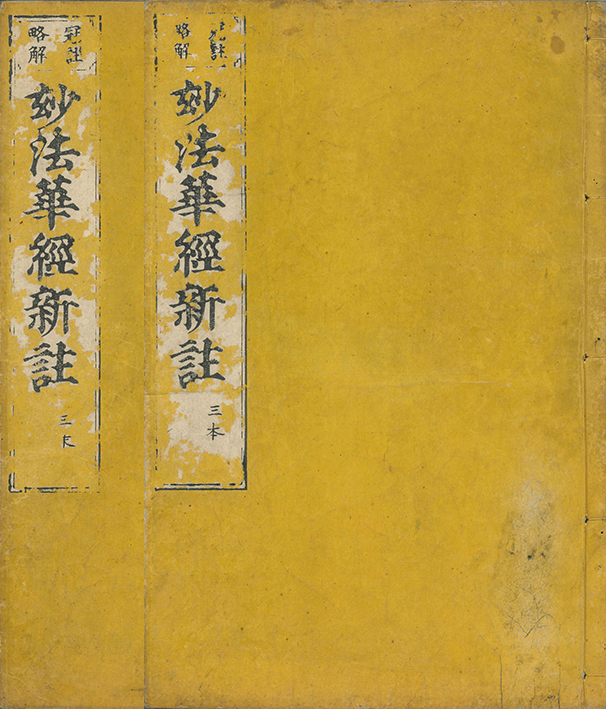 註
略解
玅法華經新註
三本
冠註
略解
玅法華經新註
三